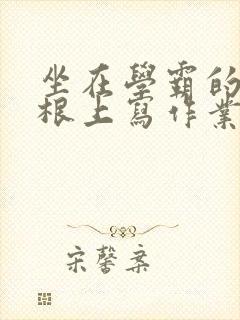 坐在學霸的
根上寫作業
宋馨棄